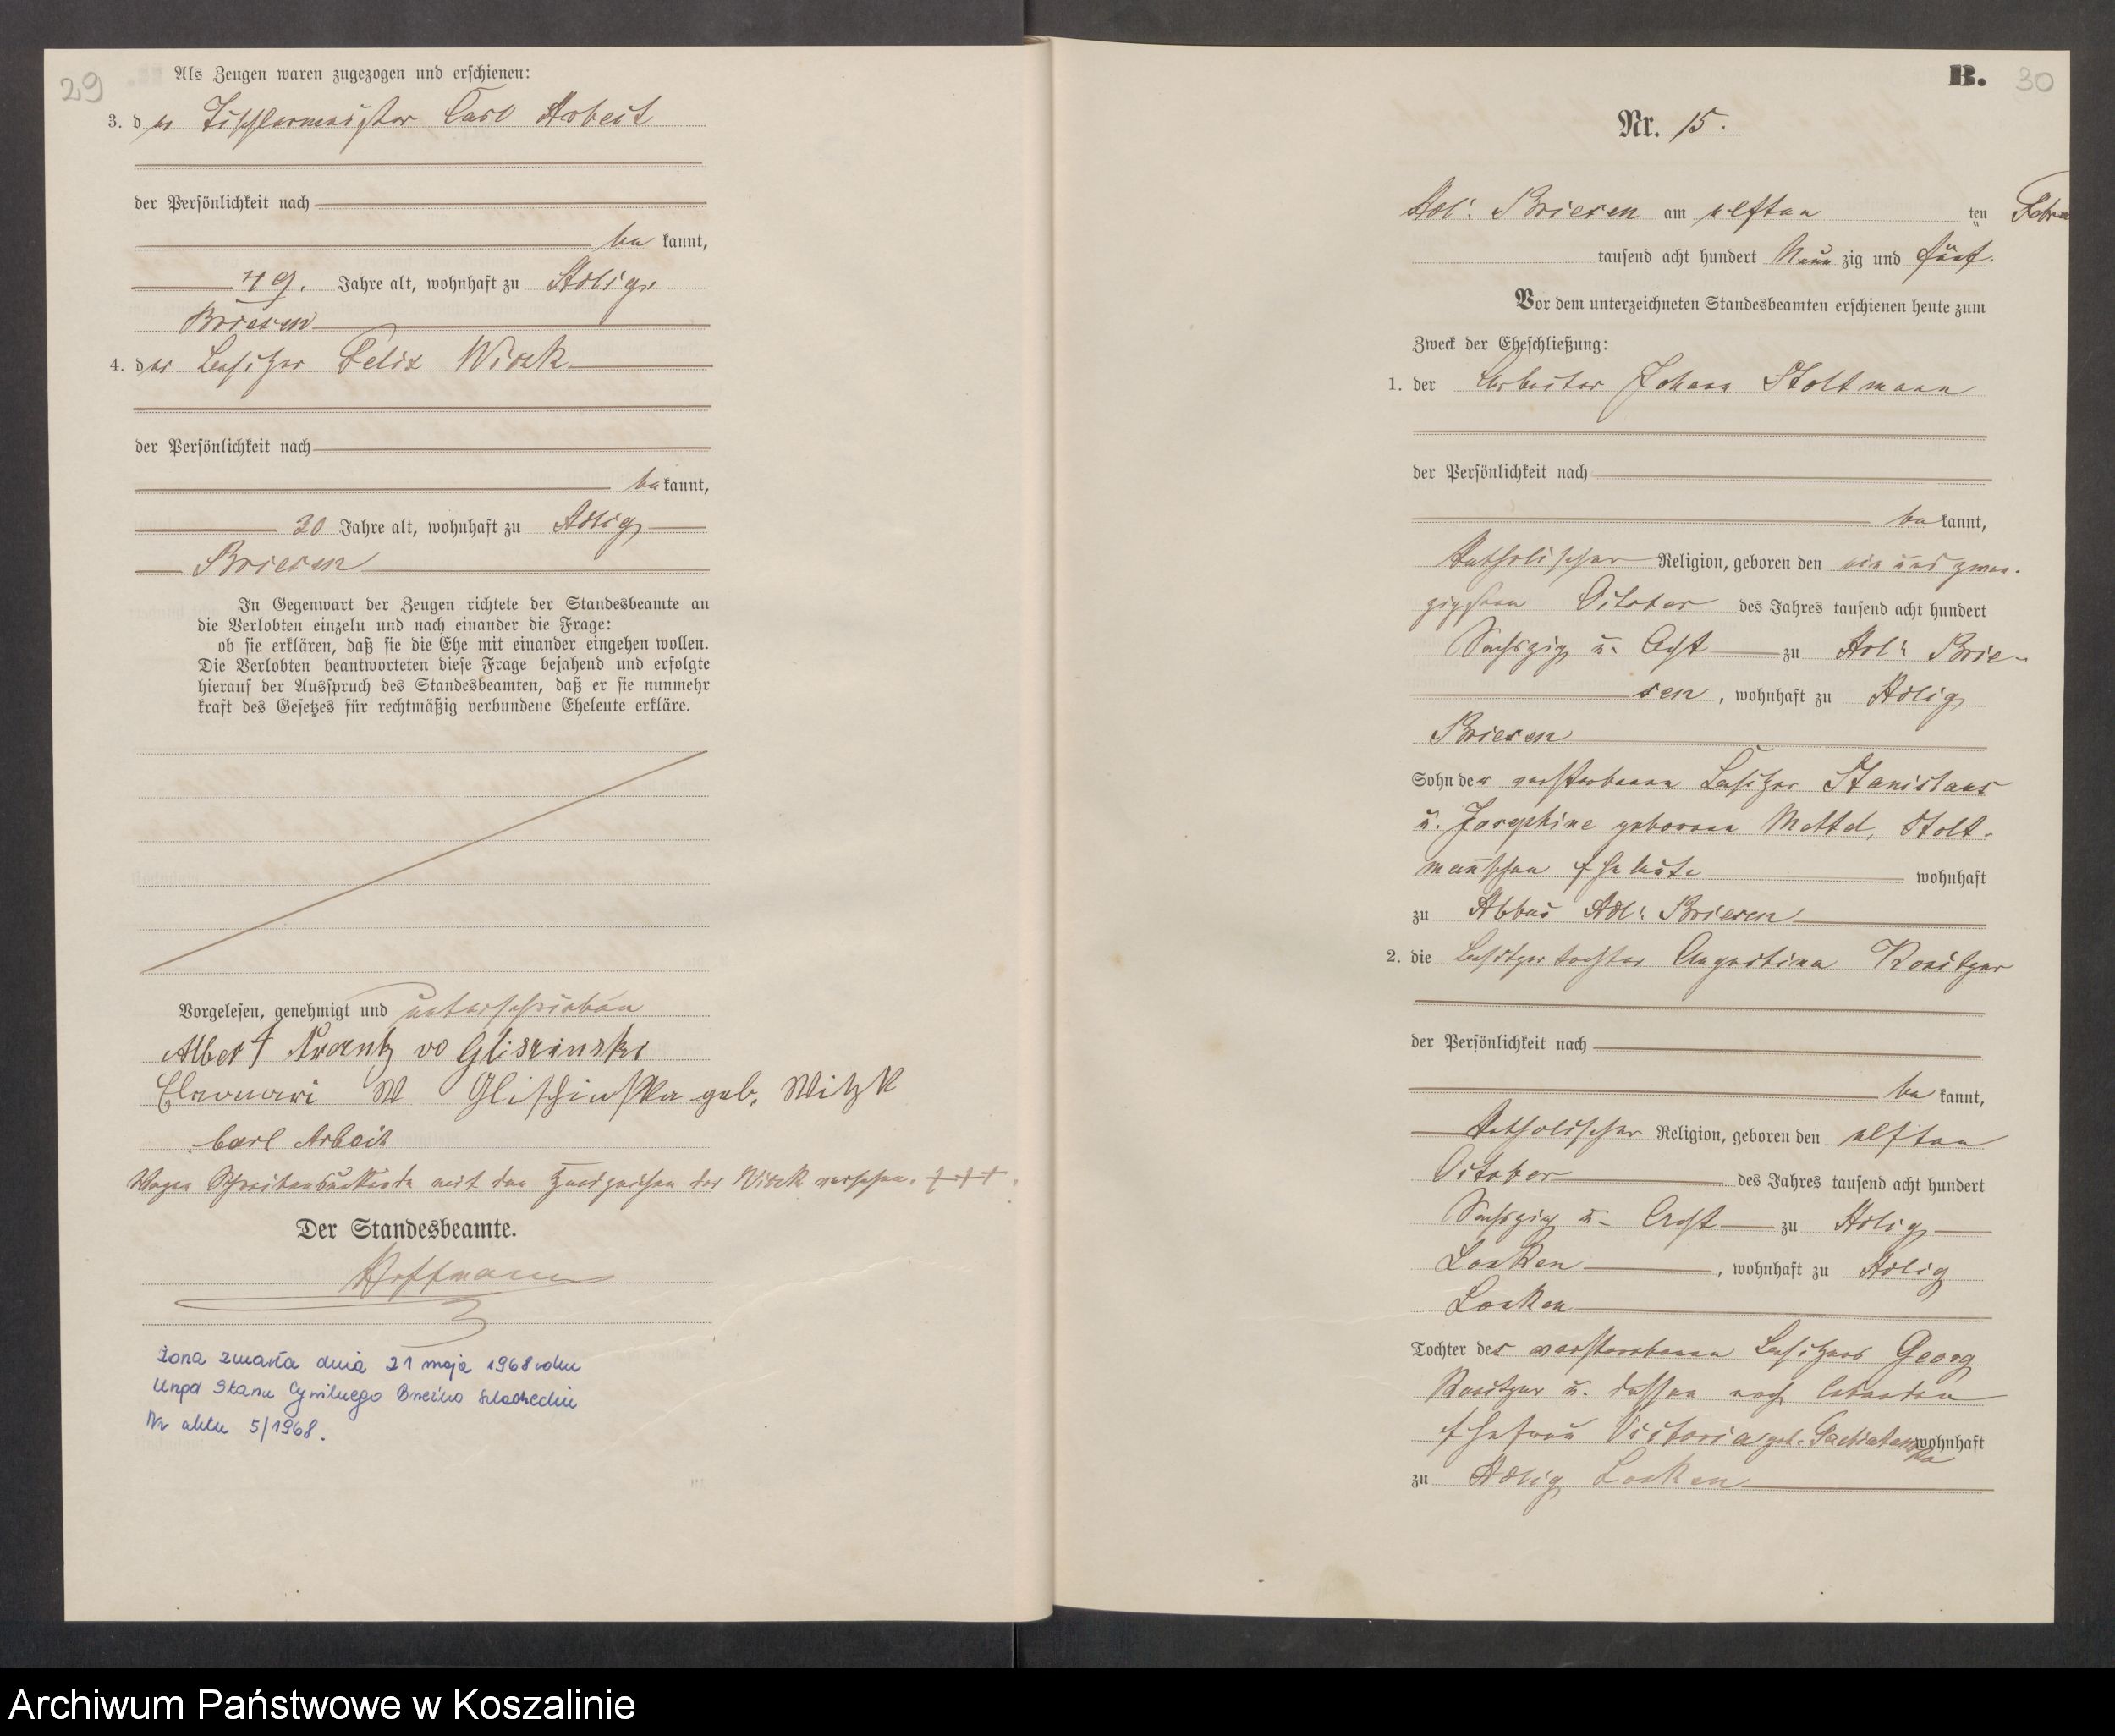 29
Als Zeugen waren zugezogen und erschienen:
3. der Tischlermeister Carl Arbeit
der Persönlichkeit nach
bekannt,
49. Jahre alt, wohnhaft zu Adlig
Briesen
4. der Besitzer Felix Wiozk
der Persönlichkeit nach
bekannt,
30 Jahre alt, wohnhaft zu Adlig
Briesen
In Gegenwart der Zeugen richtete der Standesbeamte an
die Verlobten einzeln und nach einander die Frage:
ob sie erklären, daß sie die Ehe mit einander eingehen wollen.
Die Verlobten beantworteten diese Frage bejahend und erfolgte
hierauf der Ausspruch des Standesbeamten, daß er sie nunmehr
kraft des Gesetzes für rechtmäßig verbundene Eheleute erkläre.
Vorgelesen, genehmigt und unterschrieben
Albert Frantz vo Gliszinski
W Glischinska geb. Witzk
Carl Arbeit
Wegen Schreibensunkunde mit den Handzeichen der versehen. +++.
Der Standesbeamte.
Hoffmann
Żona zmarła dnia 21 maja 1968 roku
Urząd Stanu Cywilnego Brzeźno Szlacheckie
Nr aktu 5/1968.
B. 30
Nr. 15.
Adl: Briesen am elften ten Febru
tausend acht hundert Neunzig und fünf.
Vor dem unterzeichneten Standesbeamten erschienen heute zum
Zweck der Eheschließung:
1. der Arbeiter Johann Stoltmann
der Persönlichkeit nach
bekannt,
Katholischer Religion, geboren den ein und zwan-
zigsten October des Jahres tausend acht hundert
Sechszig u. Acht zu Adl: Brie-
sen, wohnhaft zu Adlig
Briesen
Sohn der verstorbenen Besitzer Stanislaus
u. Josephine geborene Mottel, Stolt-
mann'schen Eheleute wohnhaft
zu Abbau Adl: Briesen
2. die Besitzertochter Augustina Kositzer
der Persönlichkeit nach
bekannt,
Katholischer Religion, geboren den elften
October des Jahres tausend acht hundert
Sechszig u. Acht zu Adlig
Looken, wohnhaft zu Adlig
Looken
Tochter des verstorbenen Besitzers Georg
Kositzer u. dessen noch lebenden
Ehefrau Victoria geb. wohnhaft
zu Adlig Looken
Archiwum Państwowe w Koszalinie